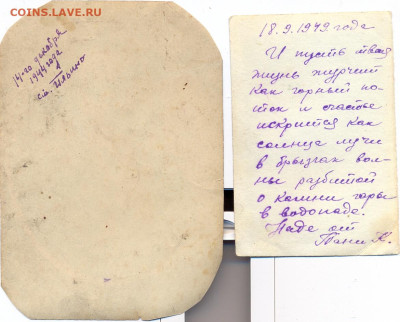 COINS.LAVE.RU
14-го декабря
1944 года
ст. Ильино
18.9.1949 года
И пусть твоя
жизнь журчит
как горный по-
ток и счастье
искрится как
солнца лучи
в брызгах вол-
ны разбитой
о камни горы
в водопаде.
Наде от
Тани К.